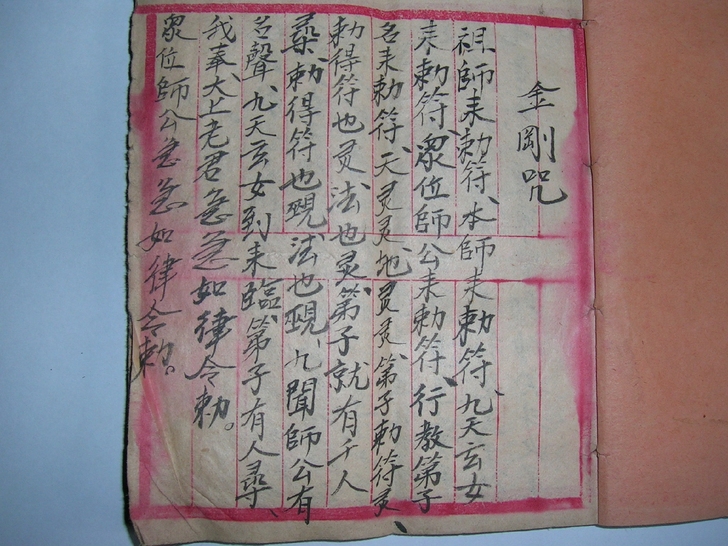 金剛咒
祖師耒勅符、本師耒勅符、九天玄女
耒勅符、眾位師公耒勅符、行教第子
名耒勅符、天灵灵、地灵灵、第子勅符灵、
勅得符也灵、法也灵、第子就有千人
桑、勅得符也覡、法也覡、九聞師公有
名聲、九天玄女到耒臨、第子有人尋、
我奉大上老君急急如律令勅。
眾位師公急急如律令勅。